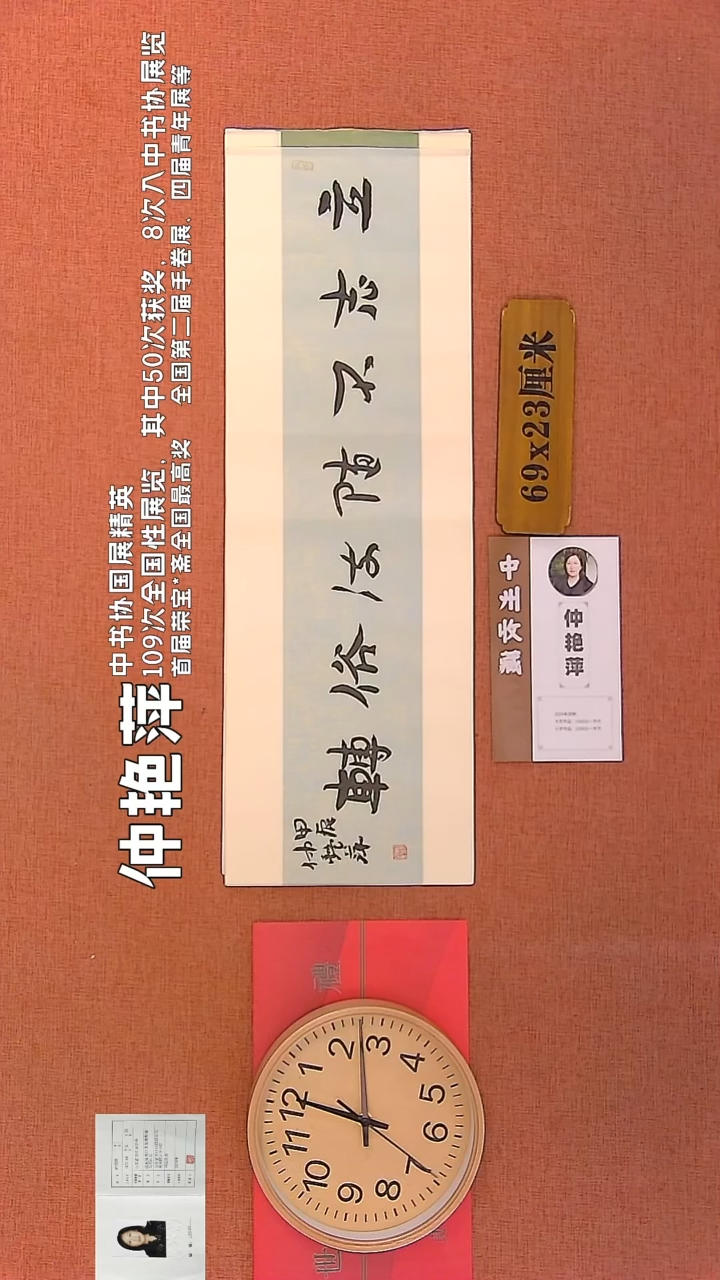 仲艳萍
中书协国展精英
109次全国性展览，其中50次获奖，8次入中书协展览
首届荣宝*斋全国最高奖 全国第二届手卷展、四届青年展等
立志不随流俗转
甲辰
仲艳萍
69x23厘米
仲艳萍
禮
12
1
2
3
4
5
6
7
8
9
10
11